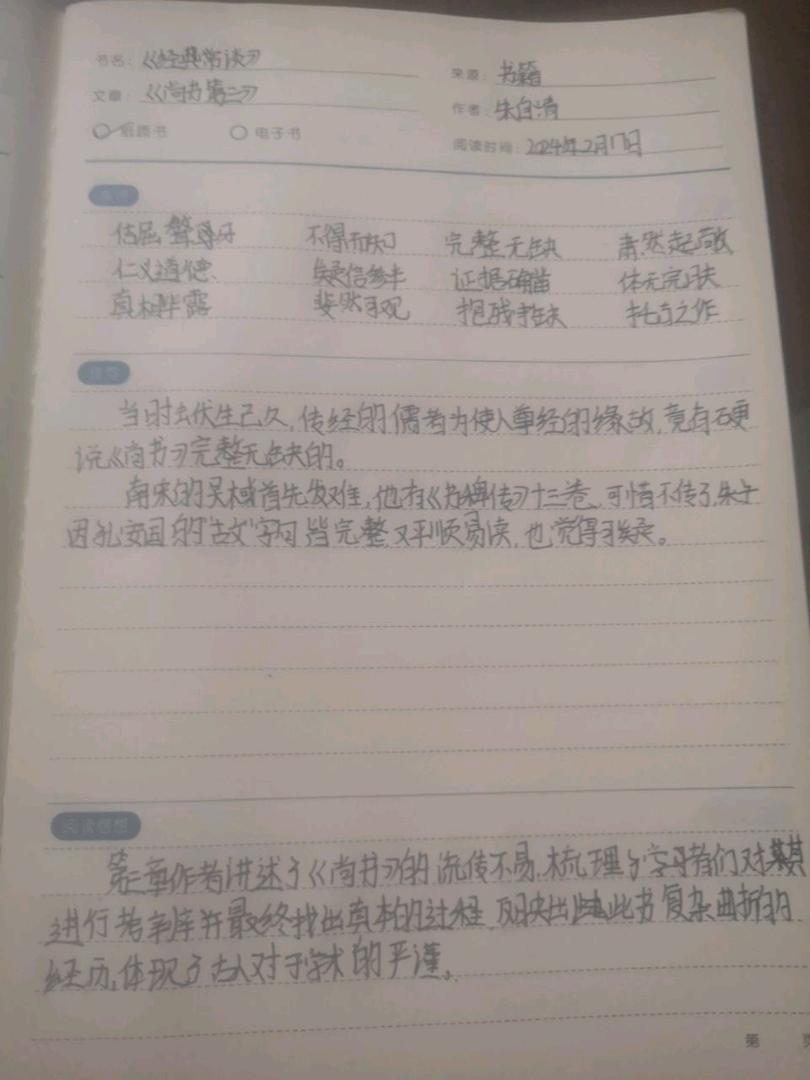 书名：《经典常谈》 来源：书籍
文章：《尚书第二》 作者：朱自清
纸质书 电子书 阅读时间：2024年2月17日
佶屈聱牙 不得而知 完整无缺 肃然起敬
仁义道德 疑信参半 证据确凿 体无完肤
真相毕露 斐然可观 抱残守缺 托古之作
佳句
当时去伏生已久,传经的儒者为使人尊经的缘故,竟有硬
说《尚书》完整无缺的。
南宋的吴棫首先发难,他有《书稗传》十三卷,可惜不传了.朱子
因孔安国的"古文"字句皆完整,又平顺易读,也觉得可疑。
阅读感想
第二章作者讲述了《尚书》的流传不易,梳理了学者们对其
进行考 并最终找出真本的过程,反映出此书复杂曲折的
经历,体现了古人对于学术的严谨。
第 页